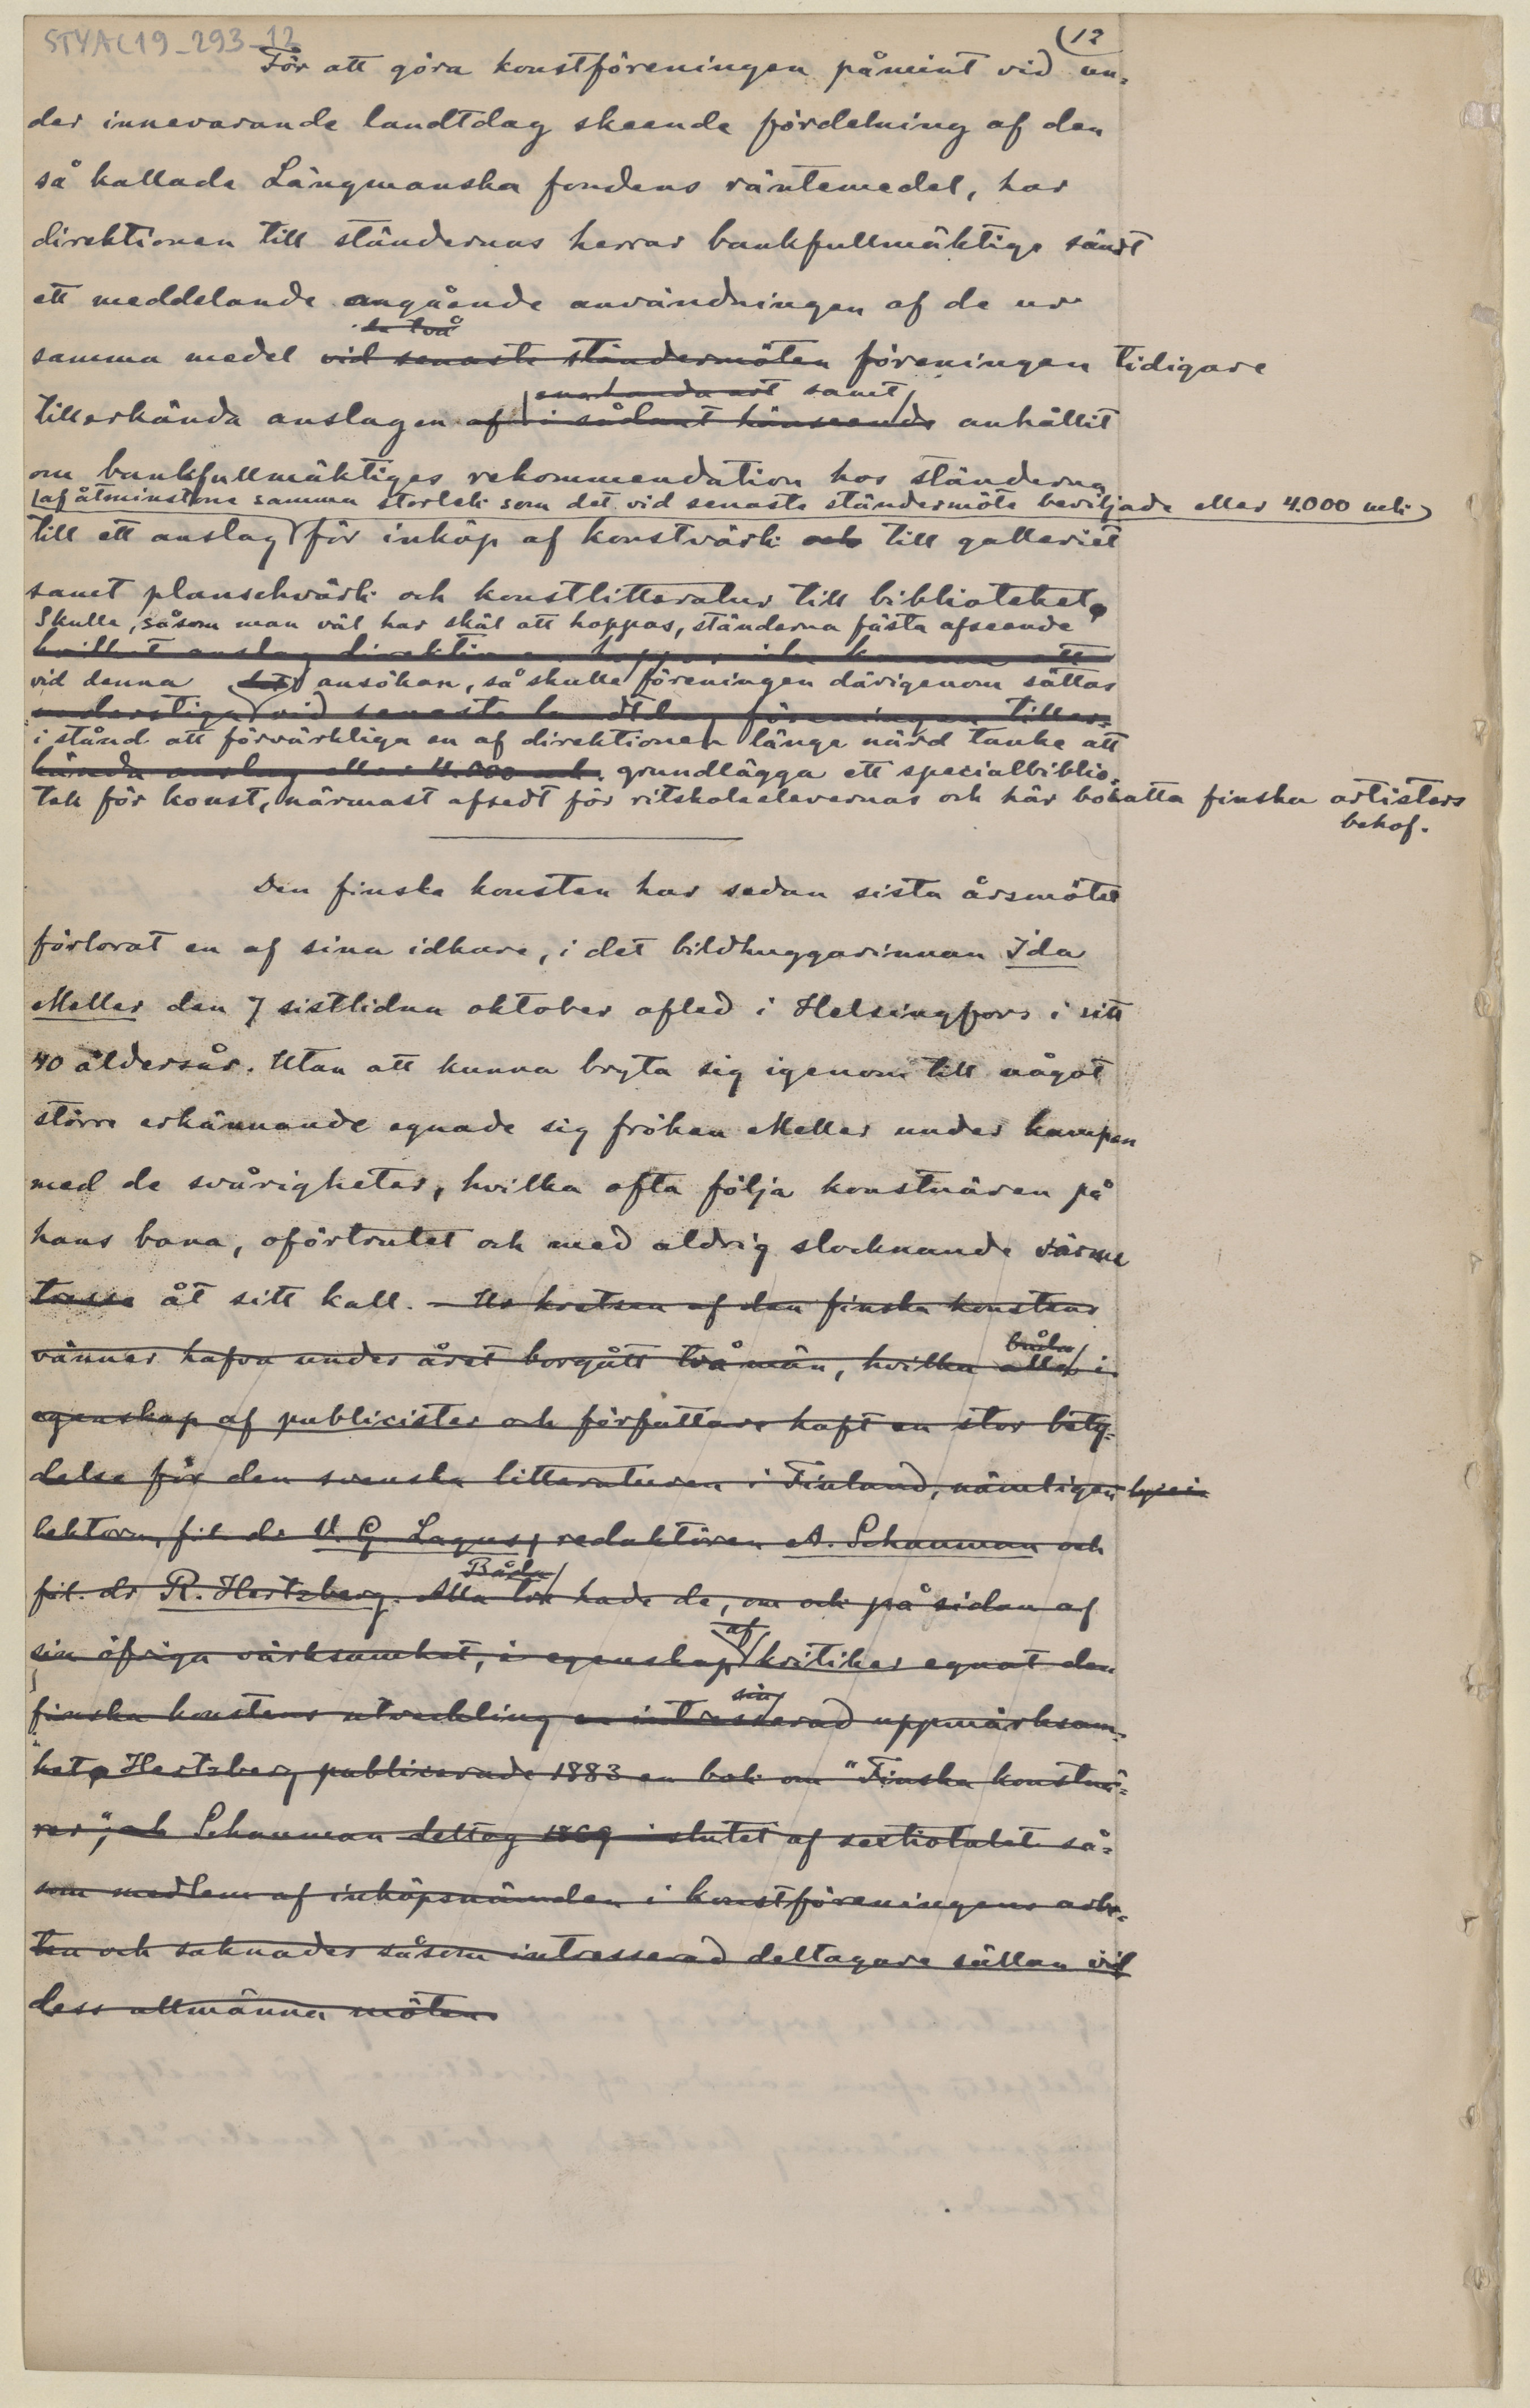 STYA C19_293_12
(12
För att göra konstföreningen påmint vid un-
der innevarande landtdag skeende fördelning af den
så kallade Längmanska fondens räntemedel, har
direktionen till ständernas herrar bankfullmäktige sändt
ett meddelande angående användningen af de ur
de två
samma medel vid senaste ständermöten föreningen tidigare
enahanda art samt
tillerkända anslagen af i sådant hänseende anhållit
om bankfullmäktiges rekommendation hos ständerna
af åtminstone samma storlek som det vid senaste ständermöte beviljade eller 4.000 mk
till ett anslag för inköp af konstvärk och till galleriet
samt planschvärk och konstlitteratur till biblioteket.
Skulle, såsom man väl har skäl att hoppas, ständerna fästa afseende
hvilket anslag direktionen hoppas icke komma att
vid denna ansökan, så skulle föreningen därigenom sättas
understiga vid senaste landtdag föreningen tiller-
i stånd att förvärkliga en af direktionen länge närd tanke att
kända anslag eller 4.000 mk. grundlägga ett specialbiblio-
tek för konst, närmast afsedt för ritskoleelevernas och här bosatta finska artisters
behof.
Den finska konsten har sedan sista årsmötet
förlorat en af sina idkare, i det bildhuggarinnan Ida
Meller den 7 sistlidna oktober afled i Helsingfors i sitt
40 åldersår. Utan att kunna bryta sig igenom till något
större erkännande egnade sig fröken Meller under kampen
med de svårigheter, hvilka ofta följa konstnären på
hans bana, oförtrutet och med aldrig slocknande värme
åt sitt kall. – Ur kretsen af den finska konstens
båda
vänner hafva under året bortgått två män, hvilka alla i
egenskap af publicister och författare haft en stor bety-
delse för den svenska litteraturen i Finland, nämligen lycei
lektorn, fil. dr V. G. Lagus, redaktören A. Schauman och
Båda
fil. dr R. Hertzberg. Alla tre hade de, om och på sidan af
af
sin öfriga värksamhet, i egenskap kritiker egnat den
sin
finska konstens utveckling en intresserad uppmärksam-
het. Hertzberg publicerade 1883 en bok om "Finska konstnä-
rer", och Schauman deltog 1869 i slutet af sextiotalet så-
som medlem af inköpsnämnden i konstföreningens arbe-
ten och saknades såsom intresserad deltagare sällan vid
dess allmänna möten